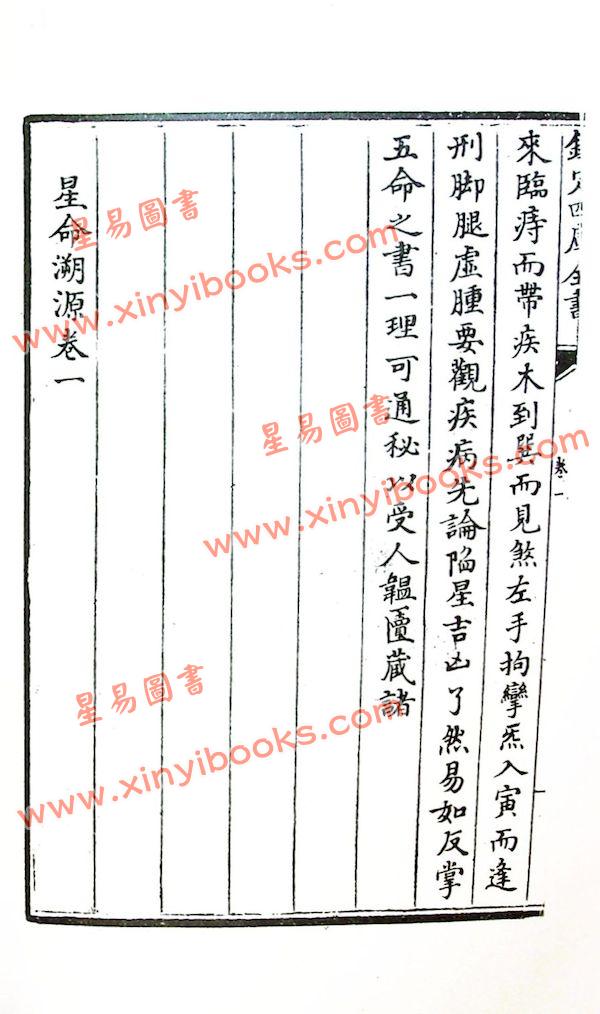 欽定四庫全書
卷一
來臨痔而帶疾木到巽而見煞左手拘攣炁入寅而逢
刑脚腿虛腫要觀疾病先論陷星吉凶了然易如反掌
五命之書一理可通秘以受人韞匵蔵諸
星命溯源卷一
星易圖書
www.xinyibooks.com
星易圖書
www.xinyibooks.com
星易圖書
www.xinyibooks.com